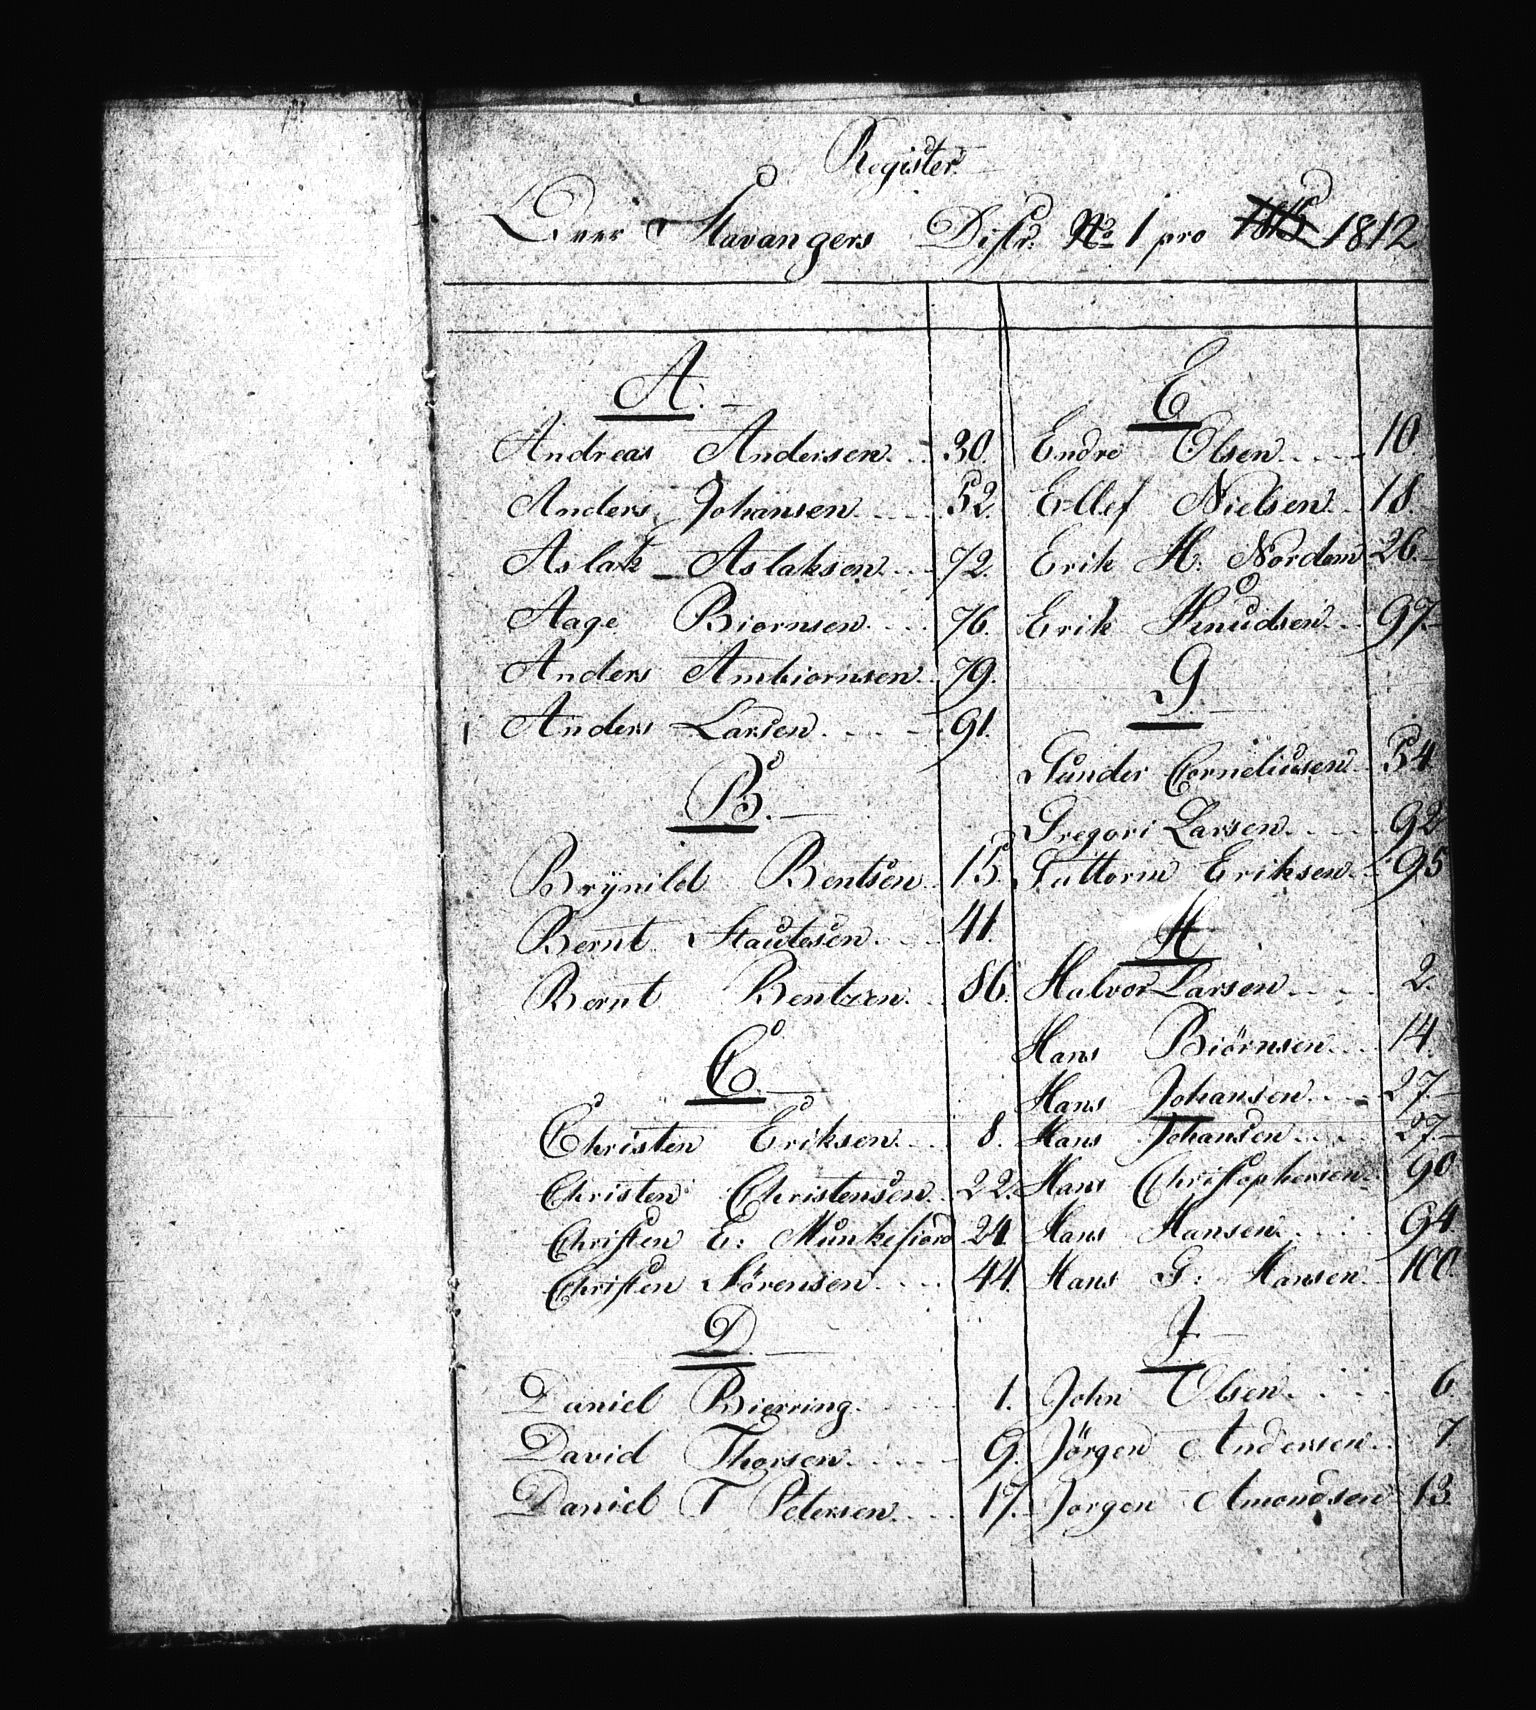 Register
Over Stavangers Distr: No 1 pro 1812
A.
Andreas Andersen 30.
Anders Johansen 52.
Aslak Aslaksen 72.
Aage Biornsen 76.
Anders Ambiornsen 79.
Anders Larsen 91.
B.
Brÿnild Bentsen 15.
Bernt Staulesen 41.
Bernt Bentzen 86.
C.
Christen Eriksen 8.
Christen Christensen 22.
Christen E: Munkefiord 24
Christen Sörensen 44
D.
Daniel Bierring 1.
David Thorsen 9.
Daniel T Petersen 17.
E
Endre Olsen 10.
Ellef Nielsen 18.
Erik H: Nordom 26.
Erik Knudsen 97.
G.
Gunder Corneliusen 54
Gregori Larsen 92
Guttorm Eriksen 95
H
Halvor Larsen 2.
Hans Biörnsen 14.
Hans Johansen 27.
Hans Johansen 27.
Hans Christophersen 90
Hans Hansen 94
Hans G: Hansen 100.
J.
John Olsen 6
Jörgen Andersen 7.
Jorgen Amondsen 13.